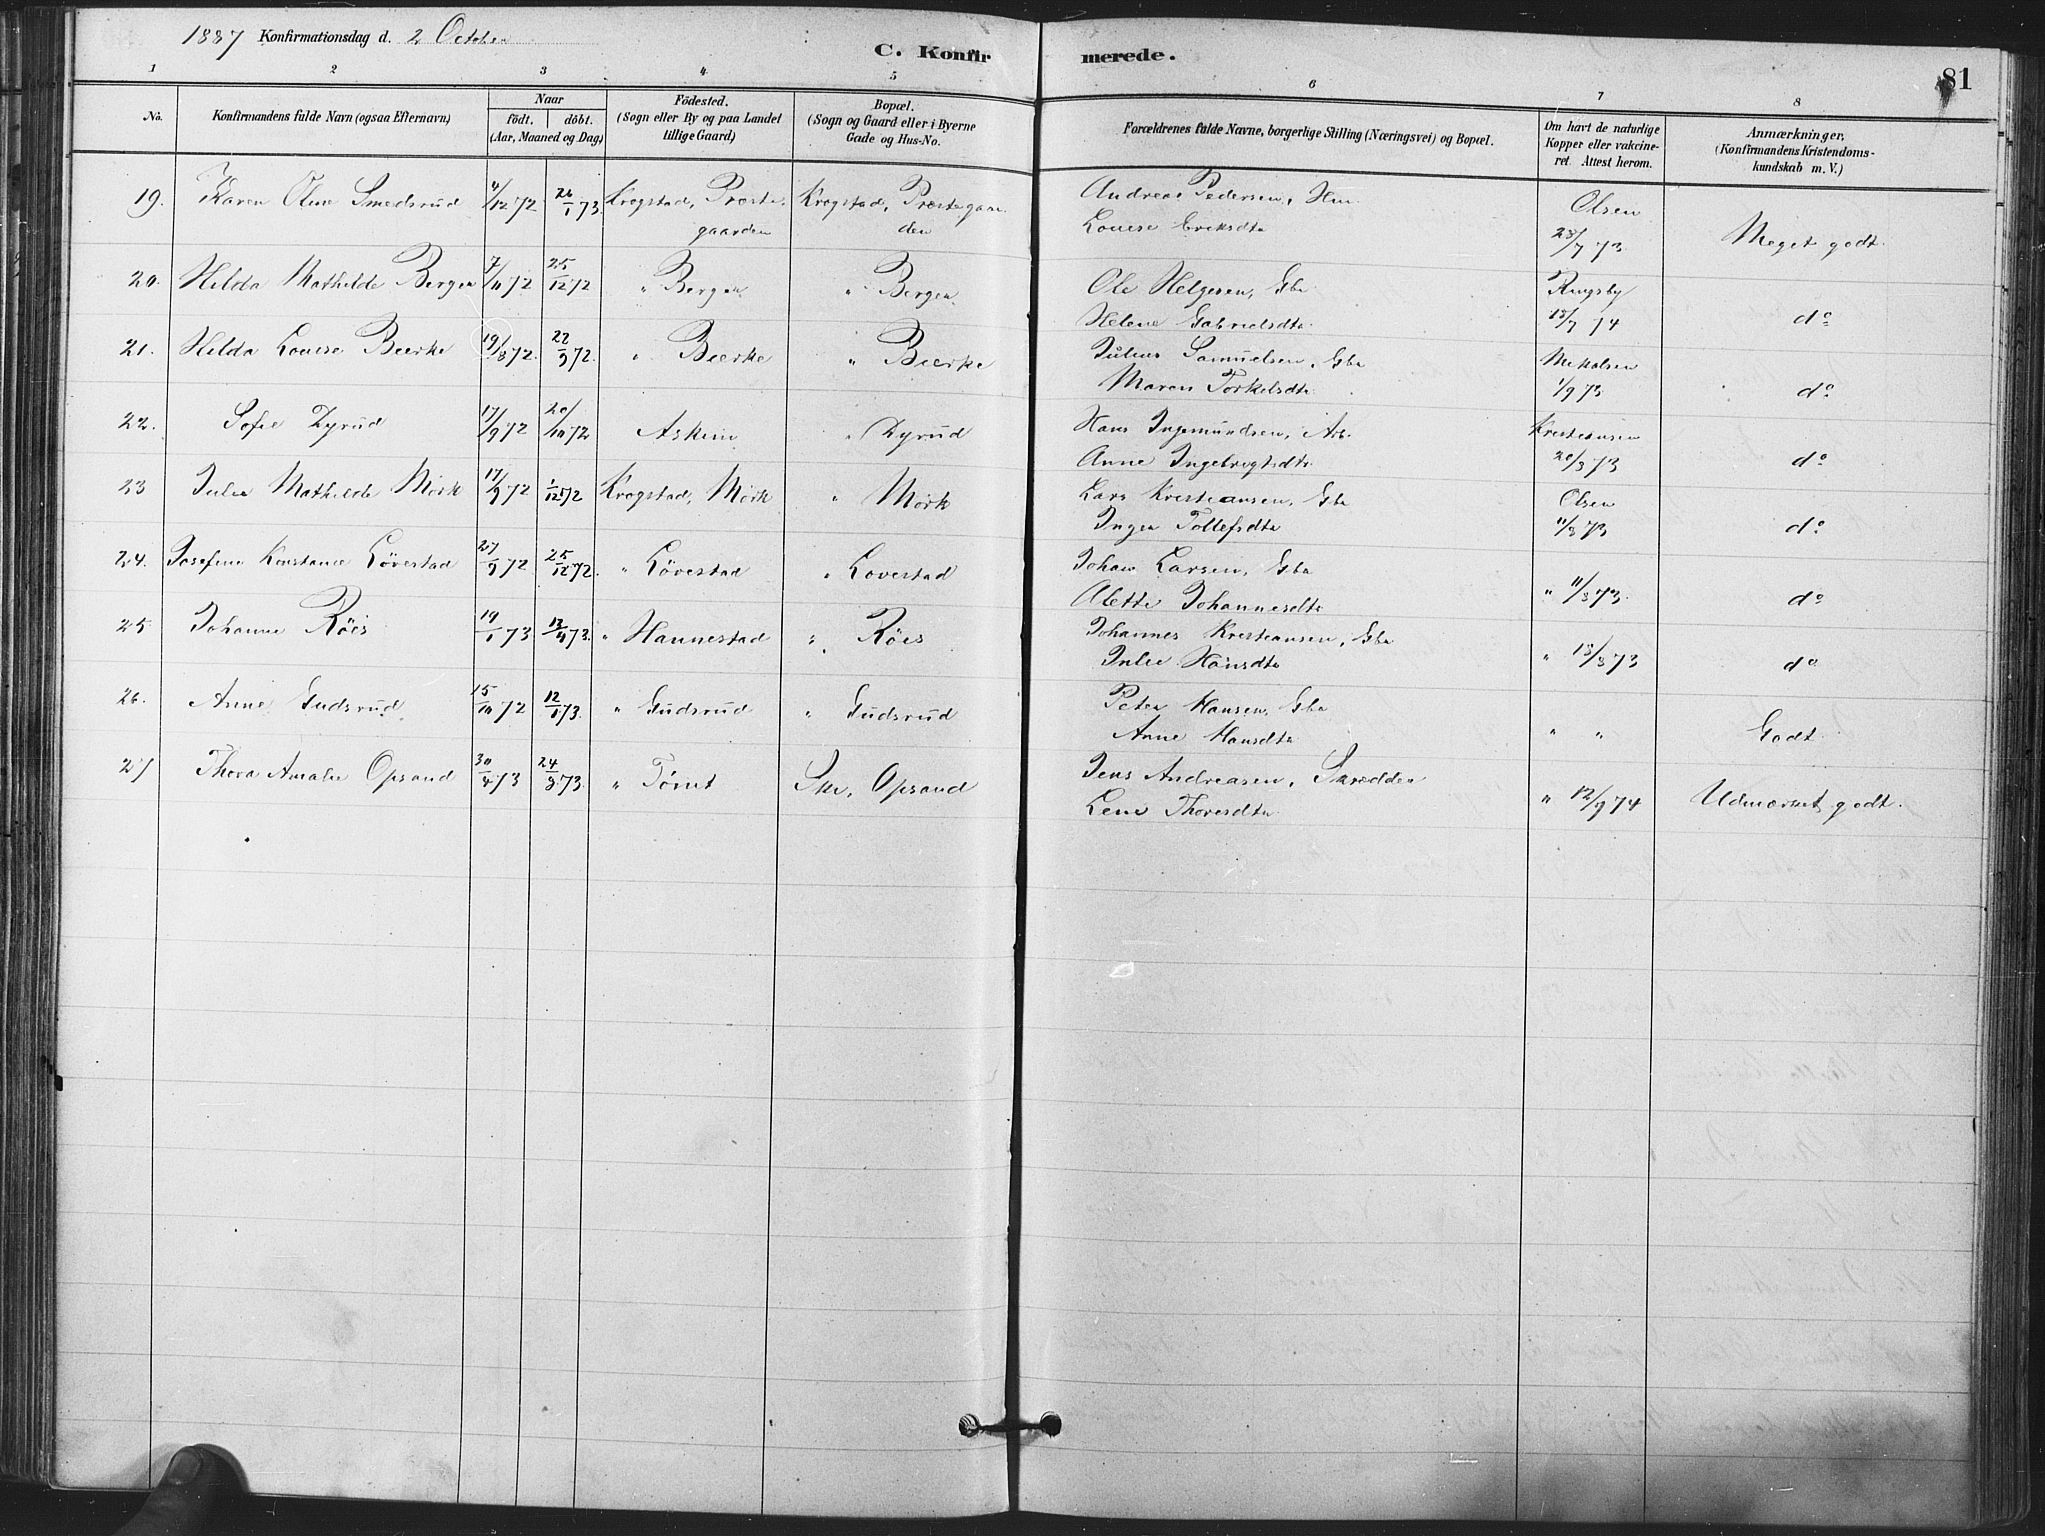 1887 Konfirmationsdag d. 2 October
C. Konfirmerede.
81
1 2 3 4 5 6 7 8
No.
Konfirmandens fulde Navn (ogsaa Efternavn)
Naar
födt. döbt.
(Aar, Maaned og Dag)
Födested.
(Sogn eller By og paa Landet
tillige Gaard)
Bopæl.
(Sogn og Gaard eller i Byerne
Gade og Hus-No.
Forældrenes fulde Navne, borgerlige Stilling (Næringsvei) og Bopæl.
Om havt de naturlige
Kopper eller vakcine-
ret. Attest herom.
Anmærkninger,
(Konfirmandens Kristendoms-
kundskab m. V.)
19. Karen Oline Smedsrud 4/12 72 26/1 73. Krogstad, Præste- Krogstad, Præstegaar- Andreas Pedersen, Hm. Olsen
gaarden den Louise Eriksdtr 23/7 73 Meget godt.
20. Hilda Mathilde Bergen 7/11 72 25/12 72 " Bergen " Bergen Ole Helgesen, Gbr Ringsby
Helene Gabrielsdtr. 13/7 74 do
21. Hilda Louise Bierke 19/8 72. 22/9 72. " Bierke " Bierke Julius Samuelsen, Gbr
Maren Torkelsdtr 1/9 73 do
22. Sofie Dyrud 17/9 72 20/10 72 Askim " Dyrud Hans Ingemundsen, Arb. Kristiansen
Anne Ingebrigtsdtr 20/3 73 do
23 Julie Mathilde Mörk 17/9 72 1/12 72 Krogstad, Mörk " Mörk Lars Kristiansen, Gbr Olsen
Inger Tollefsdtr 11/3 73 do
24. Josefine Konstance Lövestad 27/9 72 25/12 72. " Lövestad " Lovestad Johan Larsen, Gbr
Alette Johannesdtr " 11/3 73. do
25 Johanne Röis 19/1 73 13/4 73. " Hannestad " Röis Johannes Kristiansen, Gbr
Julie Hansdtr " 13/3 73 do
26. Anne Gudsrud 15/10 72 12/1 73. " Gudsrud " Gudsrud Peter Hansen, Gbr
Anne Hansdtr " " Godt
27 Thora Amalie Opsand 30/4 73 24/8 73. " Tömt Ski, Opsand Jens Andreasen, Skrædder
Lene Thoresdtr " 12/9 74 Udmærket godt.